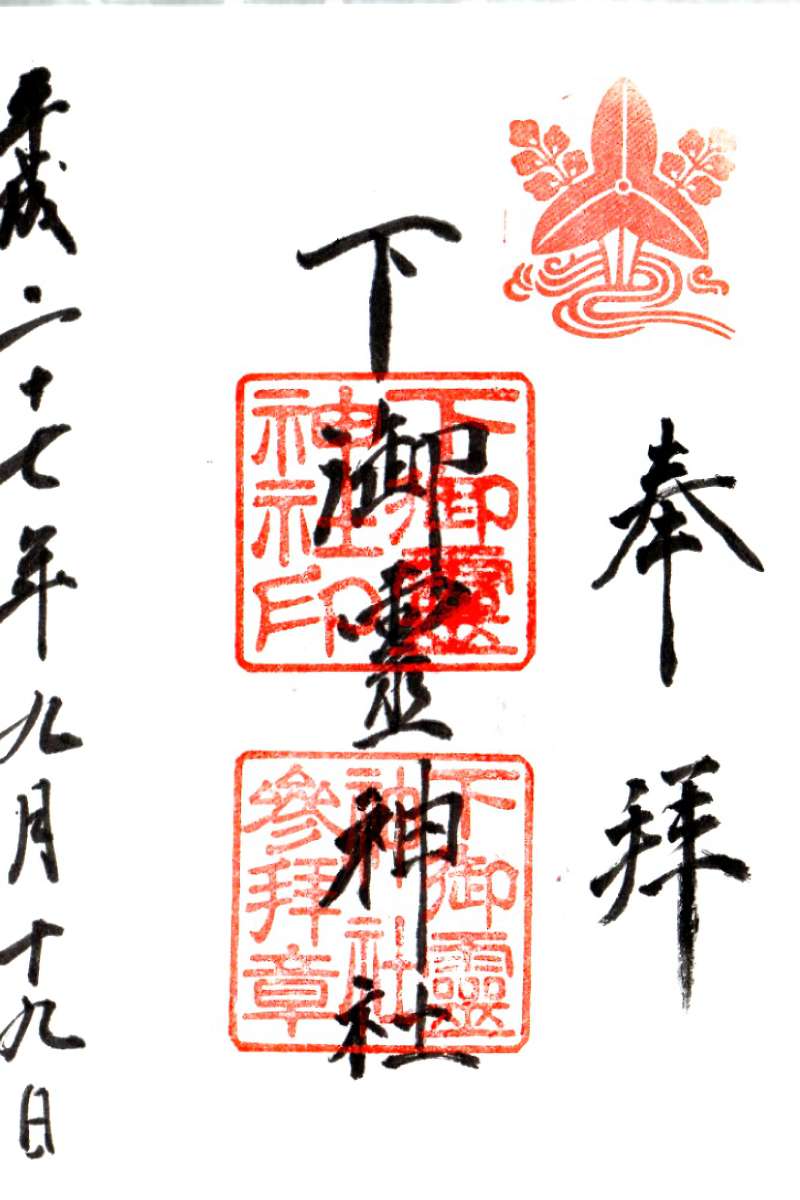 奉拝
下御靈神社
下御靈
神社印
下御靈
神社
參拜章
平成二十七年九月十九日